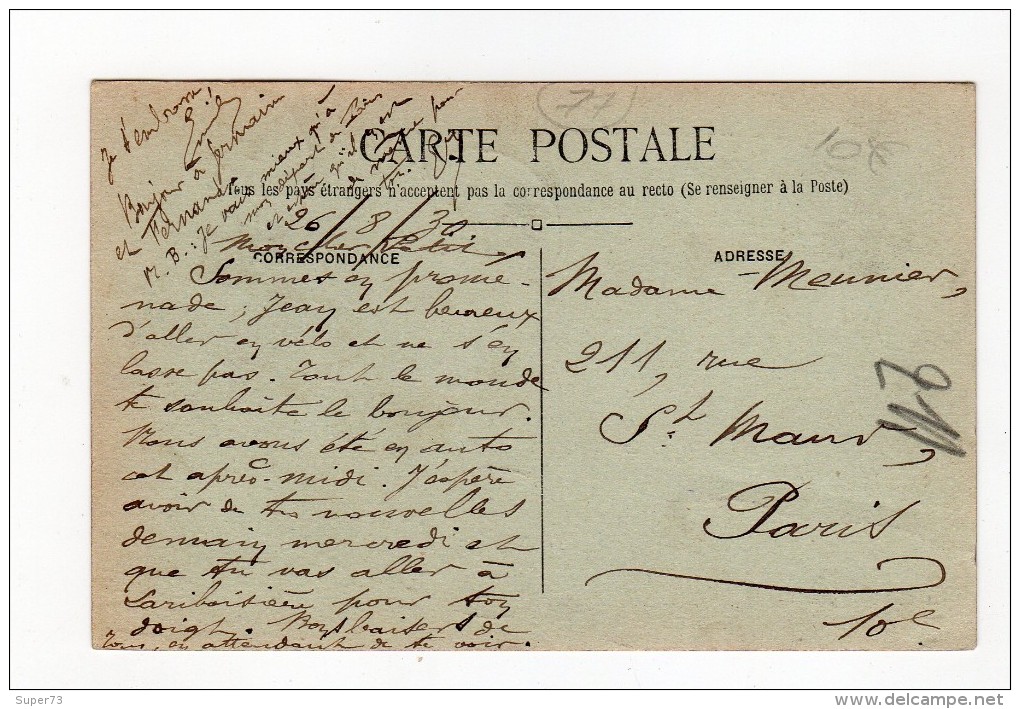 (77)
10€
CARTE POSTALE
Tous les pays étrangers n'acceptent pas la correspondance au recto (Se renseigner à la Poste)
CORRESPONDANCE
26/8/30
Mon cher Petit,
Sommes en prome-
nade ; Jean est heureux
d'aller en vélo et ne s'en
lasse pas. Tout le monde
te souhaite le bonjour.
Nous avons été en auto
cet après-midi. J'espère
avoir de tes nouvelles
demain mercredi et
que tu vas aller à
Lariboisière pour ton
doigt. Bons baisers de
tous, en attendant de te voir.
Je t'embrasse
Emile
Bonjour à Germaine
et Fernand
N. B. : Je vais mieux qu'à
mon départ de Paris
et
qu'il en est
de même pour
toi.
ADRESSE
Madame Meunier,
211, rue
St Maur,
Paris
10e
211
Super73
www.delcampe.net